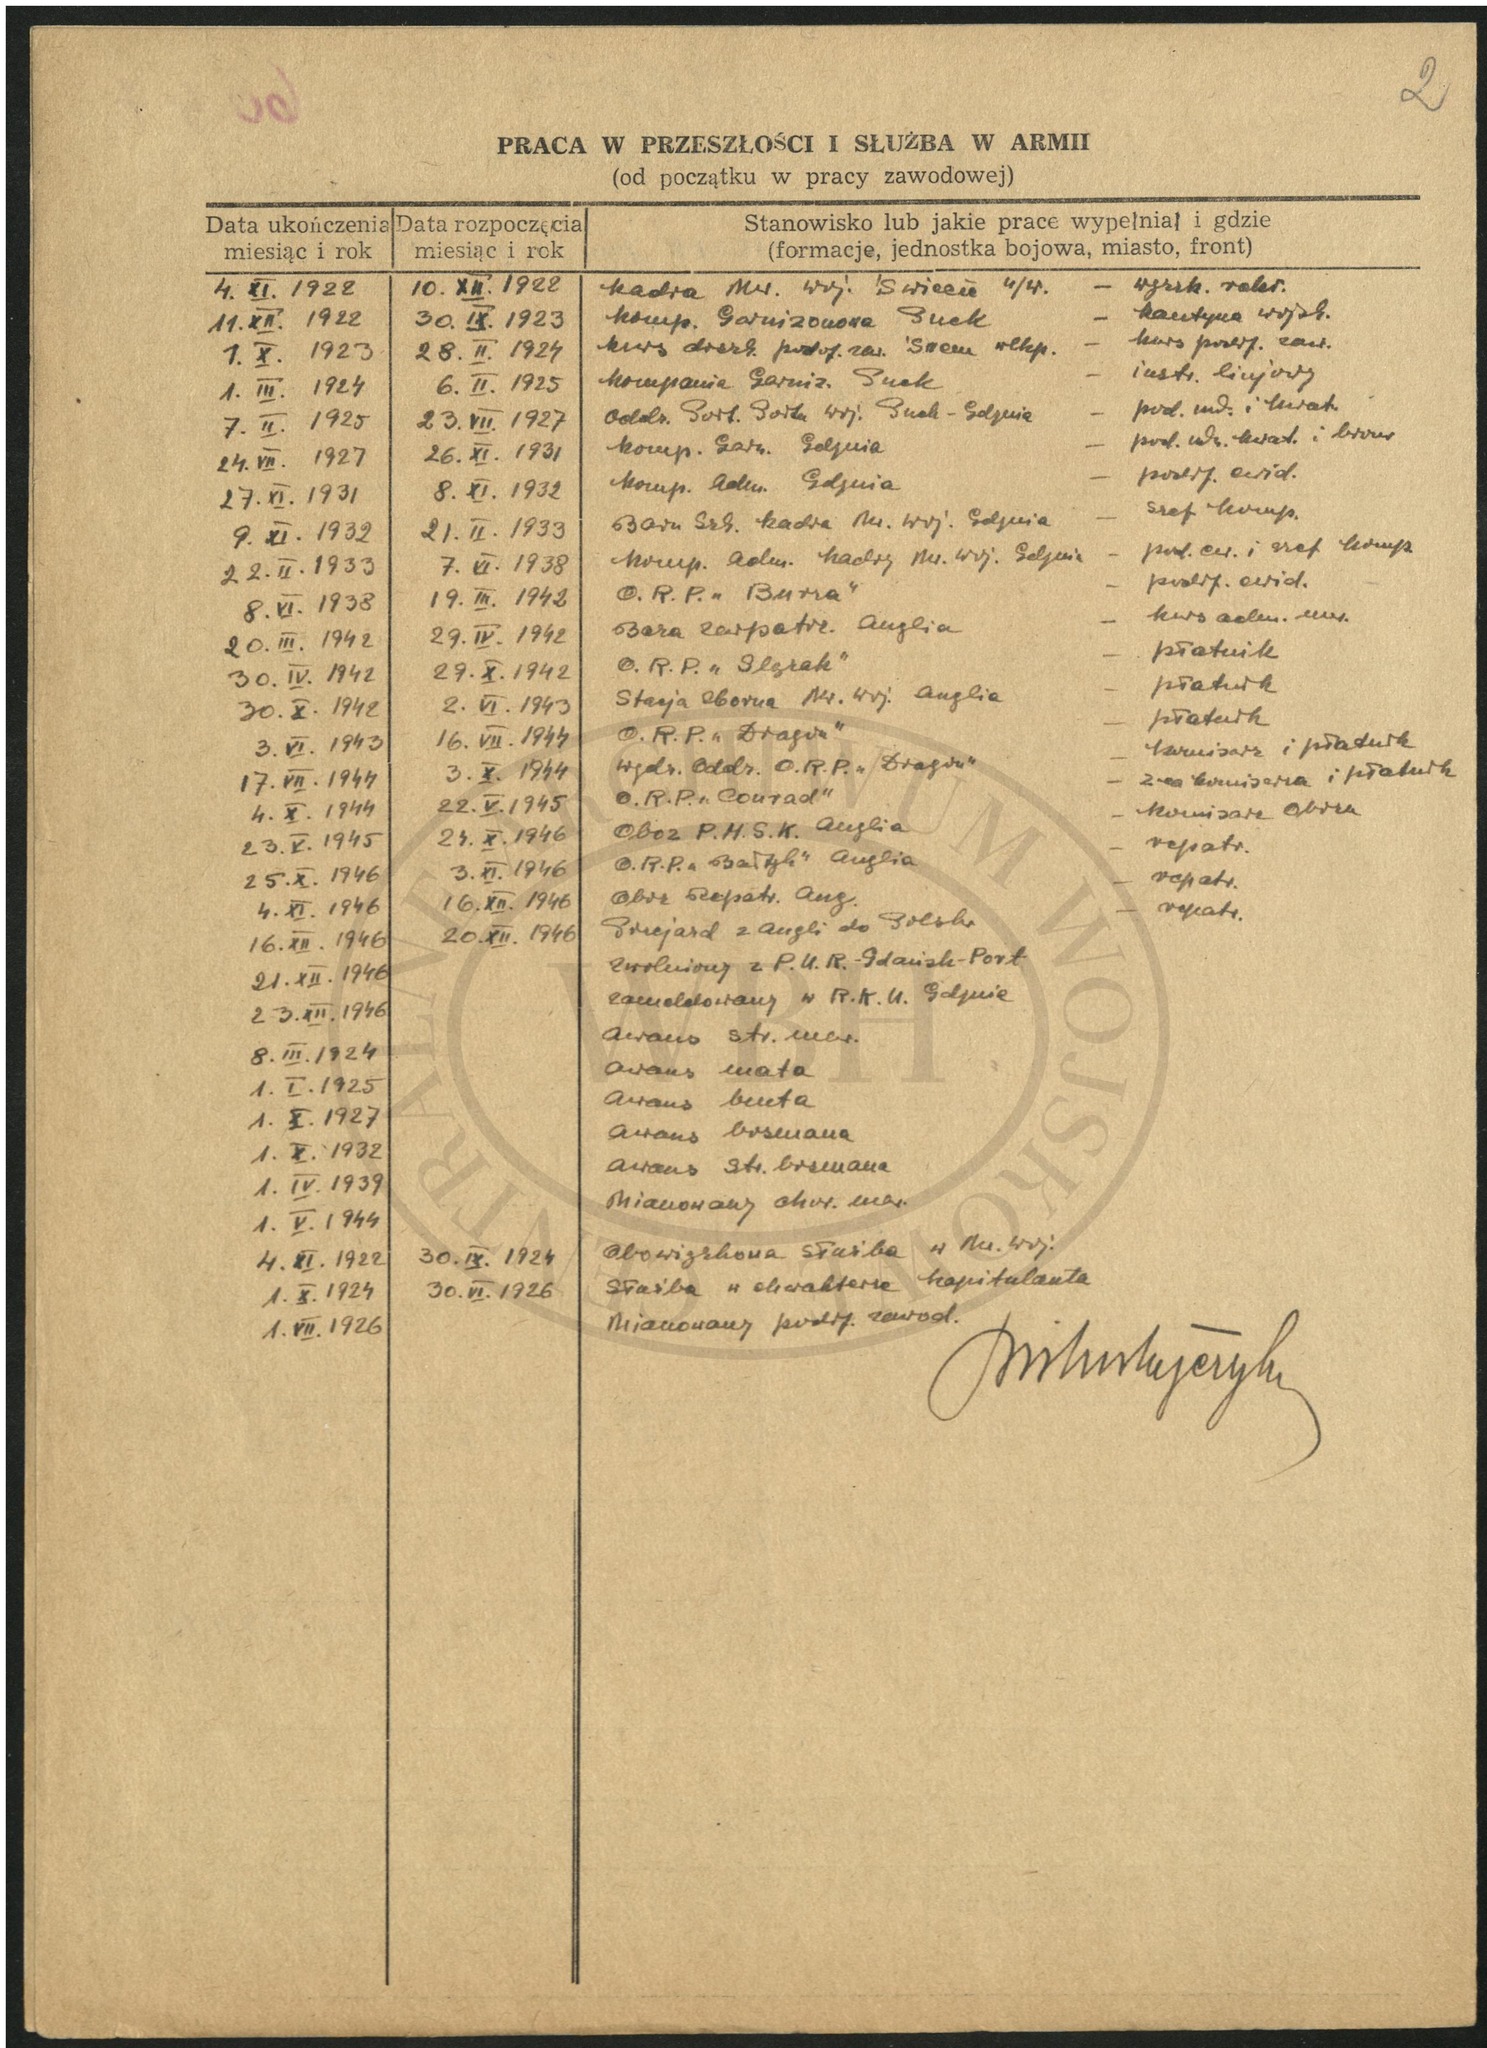 2
PRACA W PRZESZŁOŚCI I SŁUŻBA W ARMII
(od początku w pracy zawodowej)
Data ukończenia miesiąc i rok | Data rozpoczęcia miesiąc i rok | Stanowisko lub jakie prace wypełniał i gdzie (formacje, jednostka bojowa, miasto, front)
4. XI. 1922 10. XII. 1922 Kadra Mar. Woj. Świecie n/W. – wyszk. rekr.
11. XII. 1922 30. IX. 1923 Komp. Garnizonowa Puck – kantyna wojsk.
1. X. 1923 28. II. 1924 Kurs doszk. podof. zaw. Śrem wlkp. – kurs podof. zaw.
1. III. 1924 6. II. 1925 Kompania Garniz. Puck – instr. linjowy
7. II. 1925 23. VII. 1927 Oddz. Port. Portu Woj. Puck - Gdynia – pod. md. i kwat.
24. VII. 1927 26. XI. 1931 Komp. Garn. Gdynia – pod. kwat. i broni
27. XI. 1931 8. XI. 1932 Komp. Adm. Gdynia – podof. ewid.
9. XI. 1932 21. II. 1933 Baon Szk. Kadra Mar. Woj. Gdynia – szef komp.
22. II. 1933 7. VI. 1938 Komp. Adm. Kadry Mar. Woj. Gdynia – pod. ew. i szef komp.
8. VI. 1938 19. III. 1942 O.R.P. „Burza" – podof. ewid.
20. III. 1942 29. IV. 1942 Baza zaopatrz. Anglia – kurs adm. mar.
30. IV. 1942 29. X. 1942 O.R.P. „Ślązak" – płatnik
30. X. 1942 2. VI. 1943 Stacja Zborna Mar. Woj. Anglia – płatnik
3. VI. 1943 16. VII. 1944 O.R.P. „Dragon" – płatnik
17. VII. 1944 3. X. 1944 Wydz. Oddz. O.R.P. „Dragon" – komisarz i płatnik
4. X. 1944 22. V. 1945 O.R.P. „Conrad" – z-ca komisarza i płatnik
23. V. 1945 24. X. 1946 Obóz P.M.S.K. Anglia – komisarz obozu
25. X. 1946 3. XI. 1946 O.R.P. „Bałtyk" Anglia – repatr.
4. XI. 1946 16. XII. 1946 Obóz Repatr. Ang. – repatr.
16. XII. 1946 20. XII. 1946 Przejazd z Angli do Polski – repatr.
21. XII. 1946 Zwolniony z P.U.R. - Gdańsk-Port
23. XII. 1946 Zameldowany w R.K.U. Gdynia
8. III. 1924 Awans str. mar.
1. I. 1925 Awans mata
1. X. 1927 Awans bmta
1. X. 1932 Awans bosmana
1. IV. 1939 Awans str. bosmana
1. V. 1944 Mianowany chor. mar.
4. XI. 1922 30. IX. 1924 Obowiązkowa służba w Mar. Woj.
1. X. 1924 30. VI. 1926 Służba w charakterze kapitulanta
1. VII. 1926 Mianowany podof. zawod.
CENTRALNE ARCHIWUM WOJSKOWE
WBH